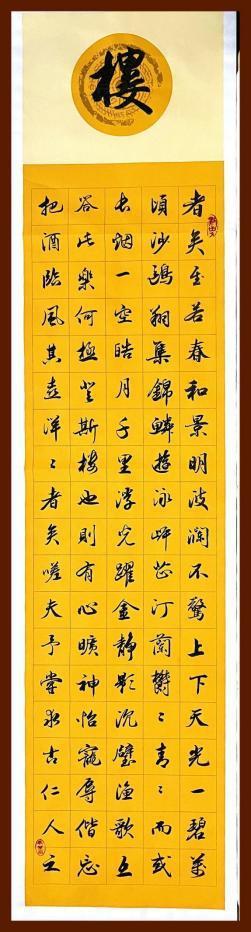 樓
者矣至若春和景明波瀾不驚上下天光一碧萬
頃沙鷗翔集錦鱗遊泳岸芷汀蘭鬱〻青〻而或
長烟一空皓月千里浮光躍金靜影沉璧漁歌互
答此樂何極登斯樓也則有心曠神怡寵辱偕忘
把酒臨風其喜洋〻者矣嗟夫予嘗求古仁人之